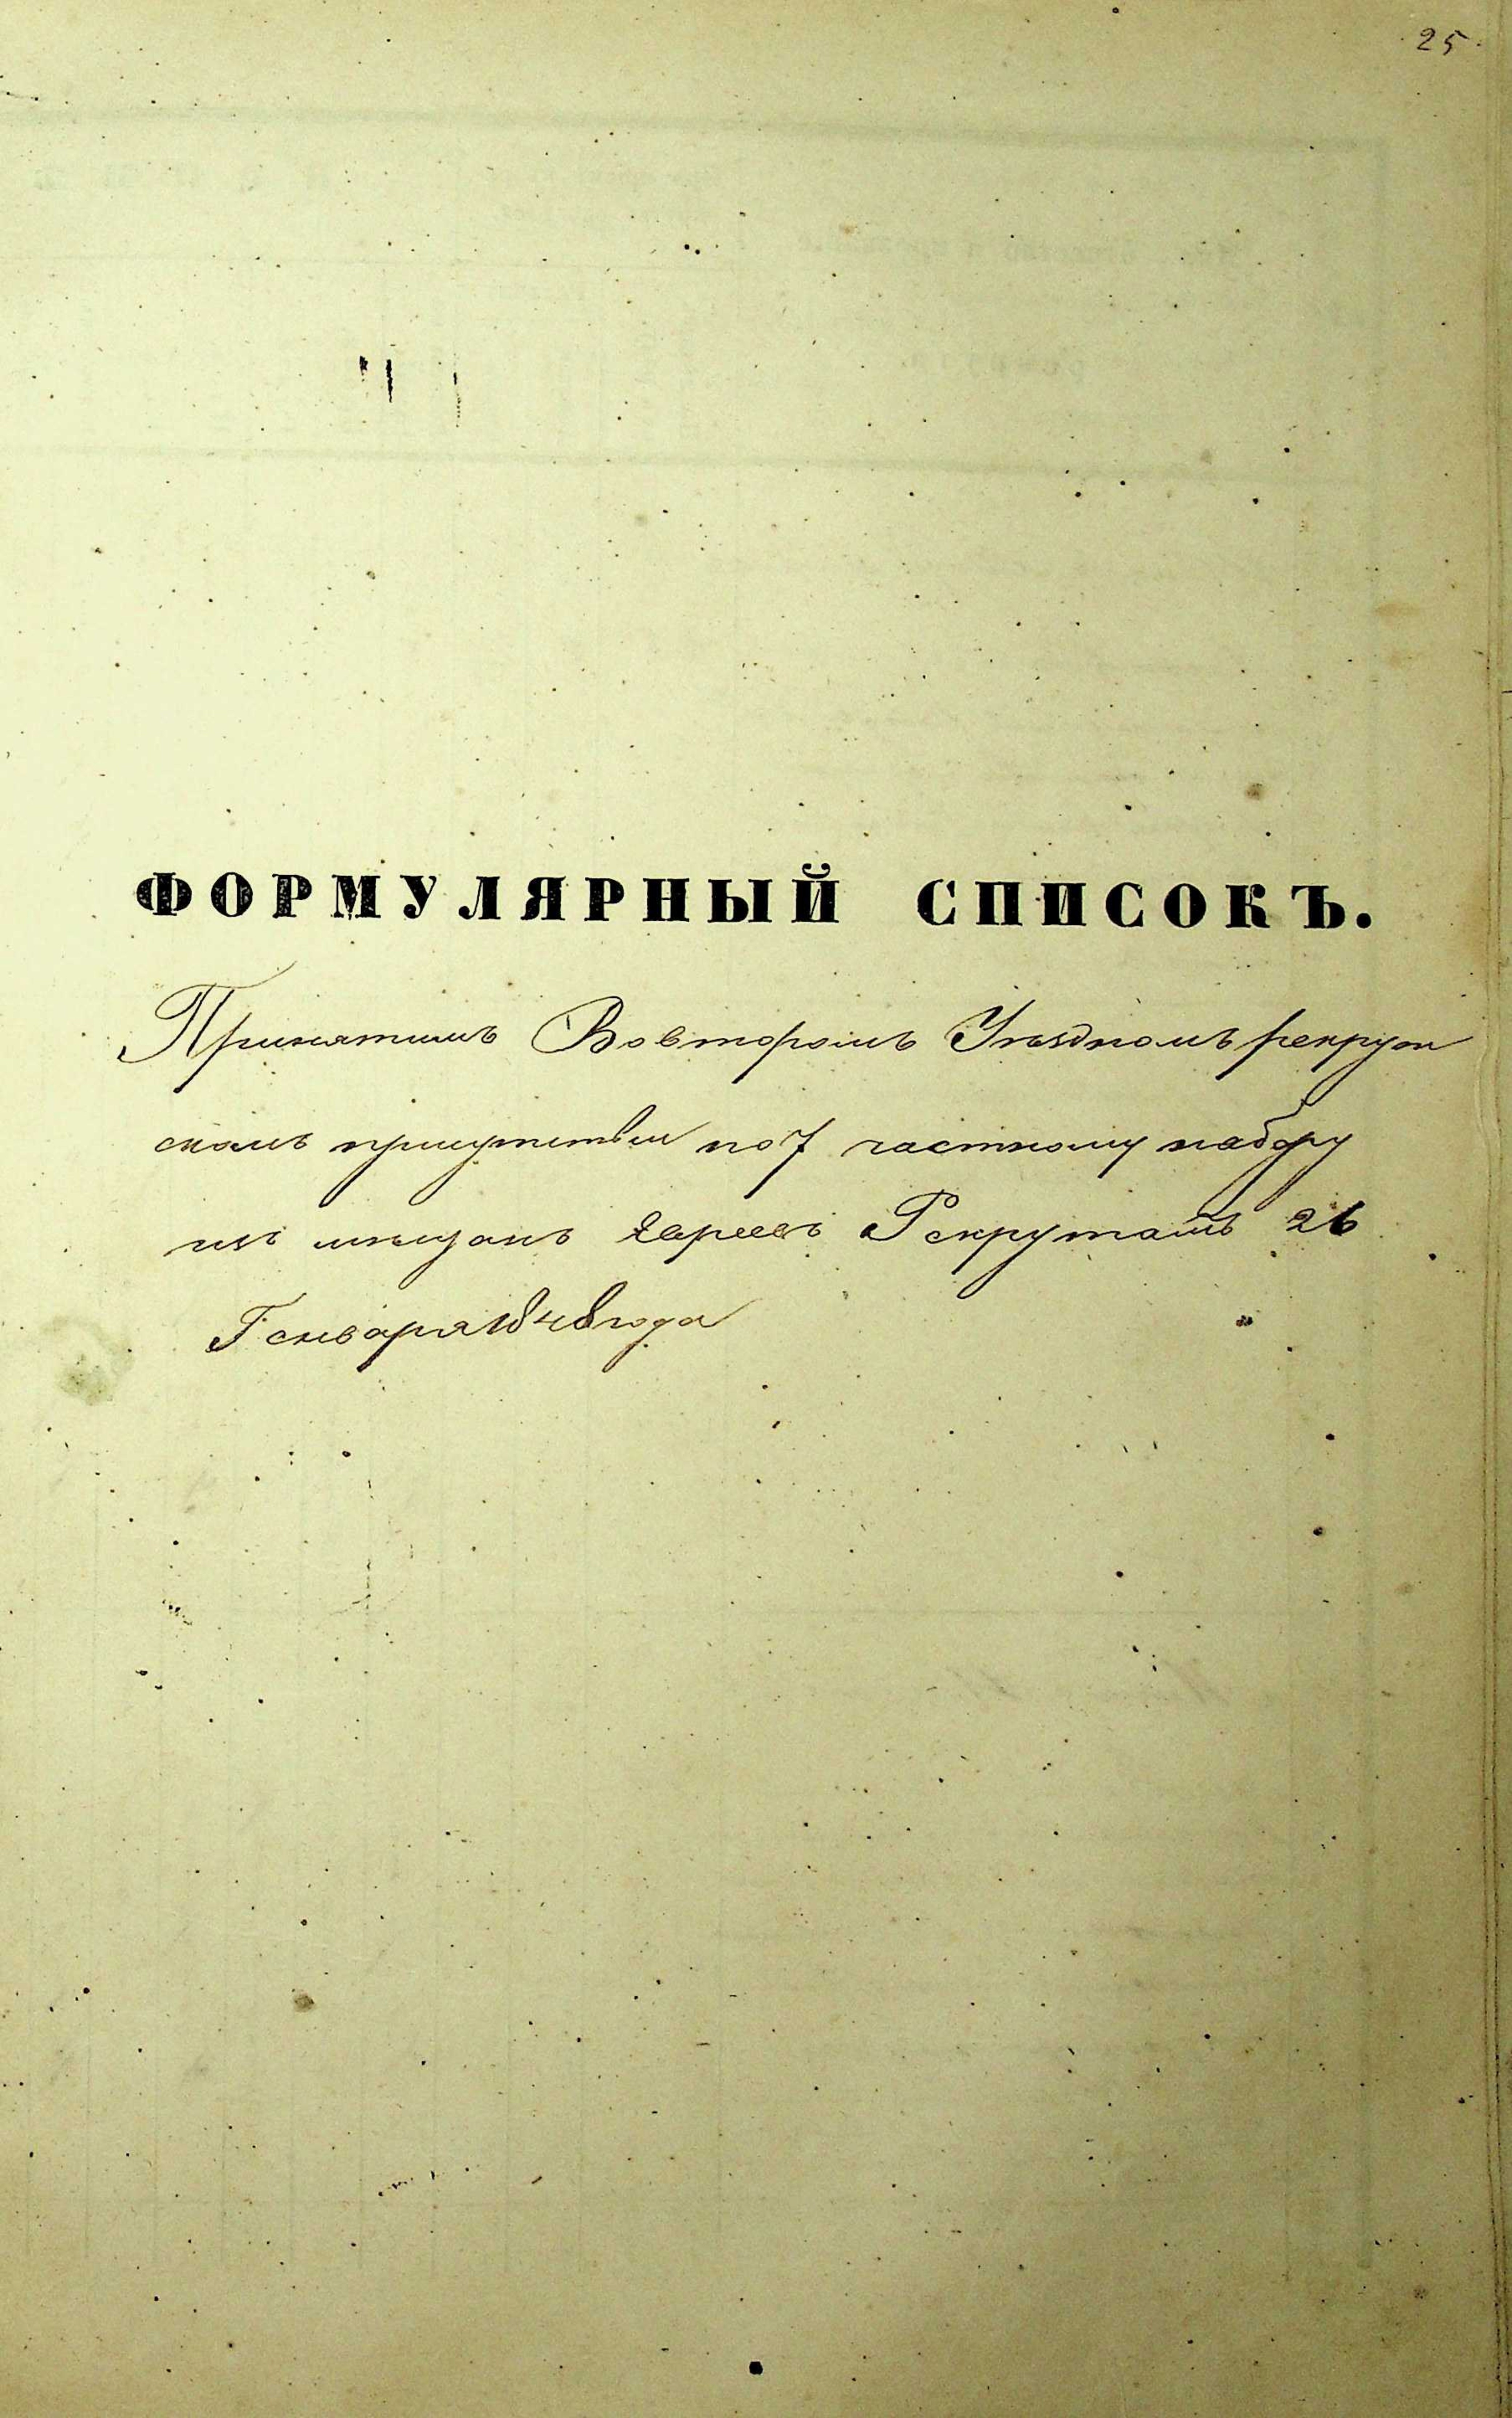 25
ФОРМУЛЯРНЫЙ СПИСОКЪ.
Принятимъ Вовторомъ Уѣздномъ рекрут
скомъ присутствіи по 7 частному набору
изъ мѣщанъ Евреевъ Рекрутамъ 26
Генваря 1848 года